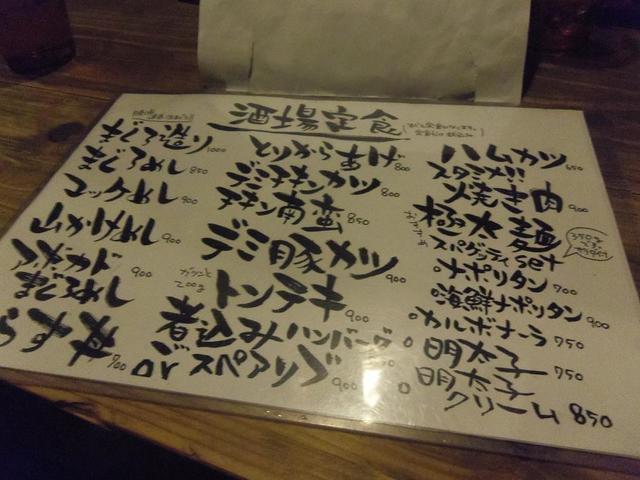 酒場定食
まぐろ造り 1000
まぐろめし 850
山かけめし 900
アボカド
まぐろめし 900
らす丼 700
とりからあげ 800
デミチキンカツ 800
チキン南蛮 850
デミ豚カツ 900
ガツンと
200g
トンテキ 900
煮込みハンバーグ
or
スペアリブ 900
ハムカツ 650
スタミナ!!
焼き肉 900
おすすめ
極太麺
スパゲッティ set
ナポリタン 700
海鮮ナポリタン 900
カルボナーラ 750
明太子 750
明太子
クリーム 850